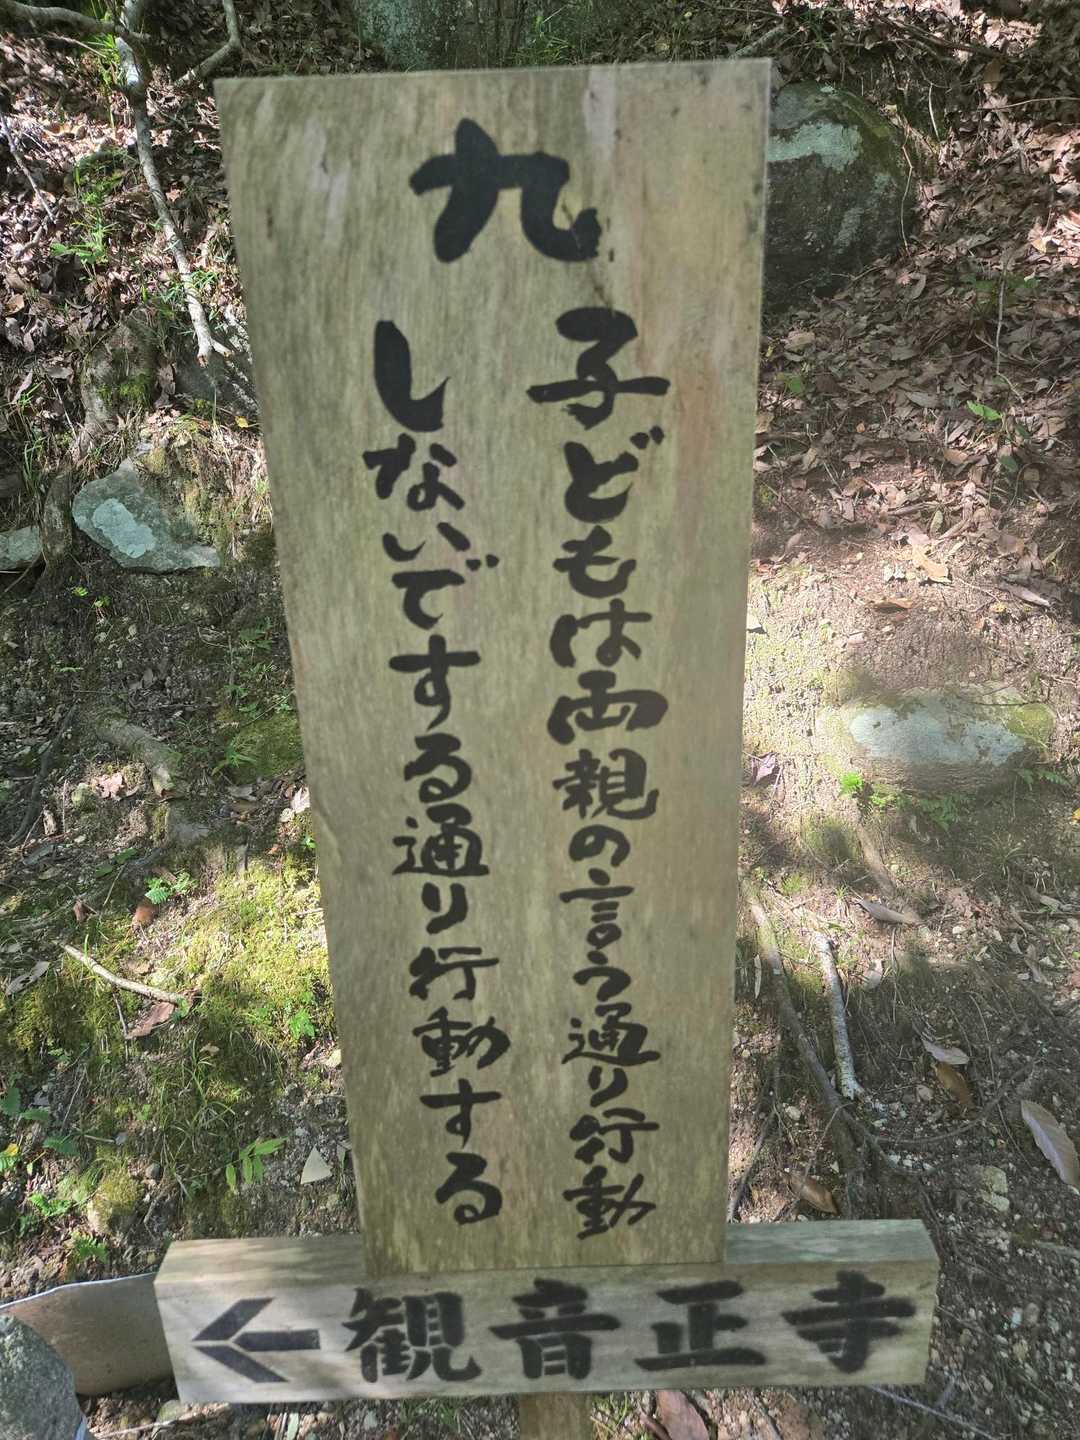 九
子どもは両親の言う通り行動
しないでする通り行動する
←観音正寺